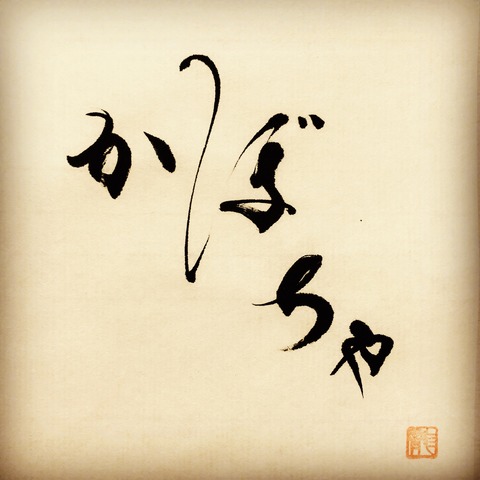 かぼちゃ